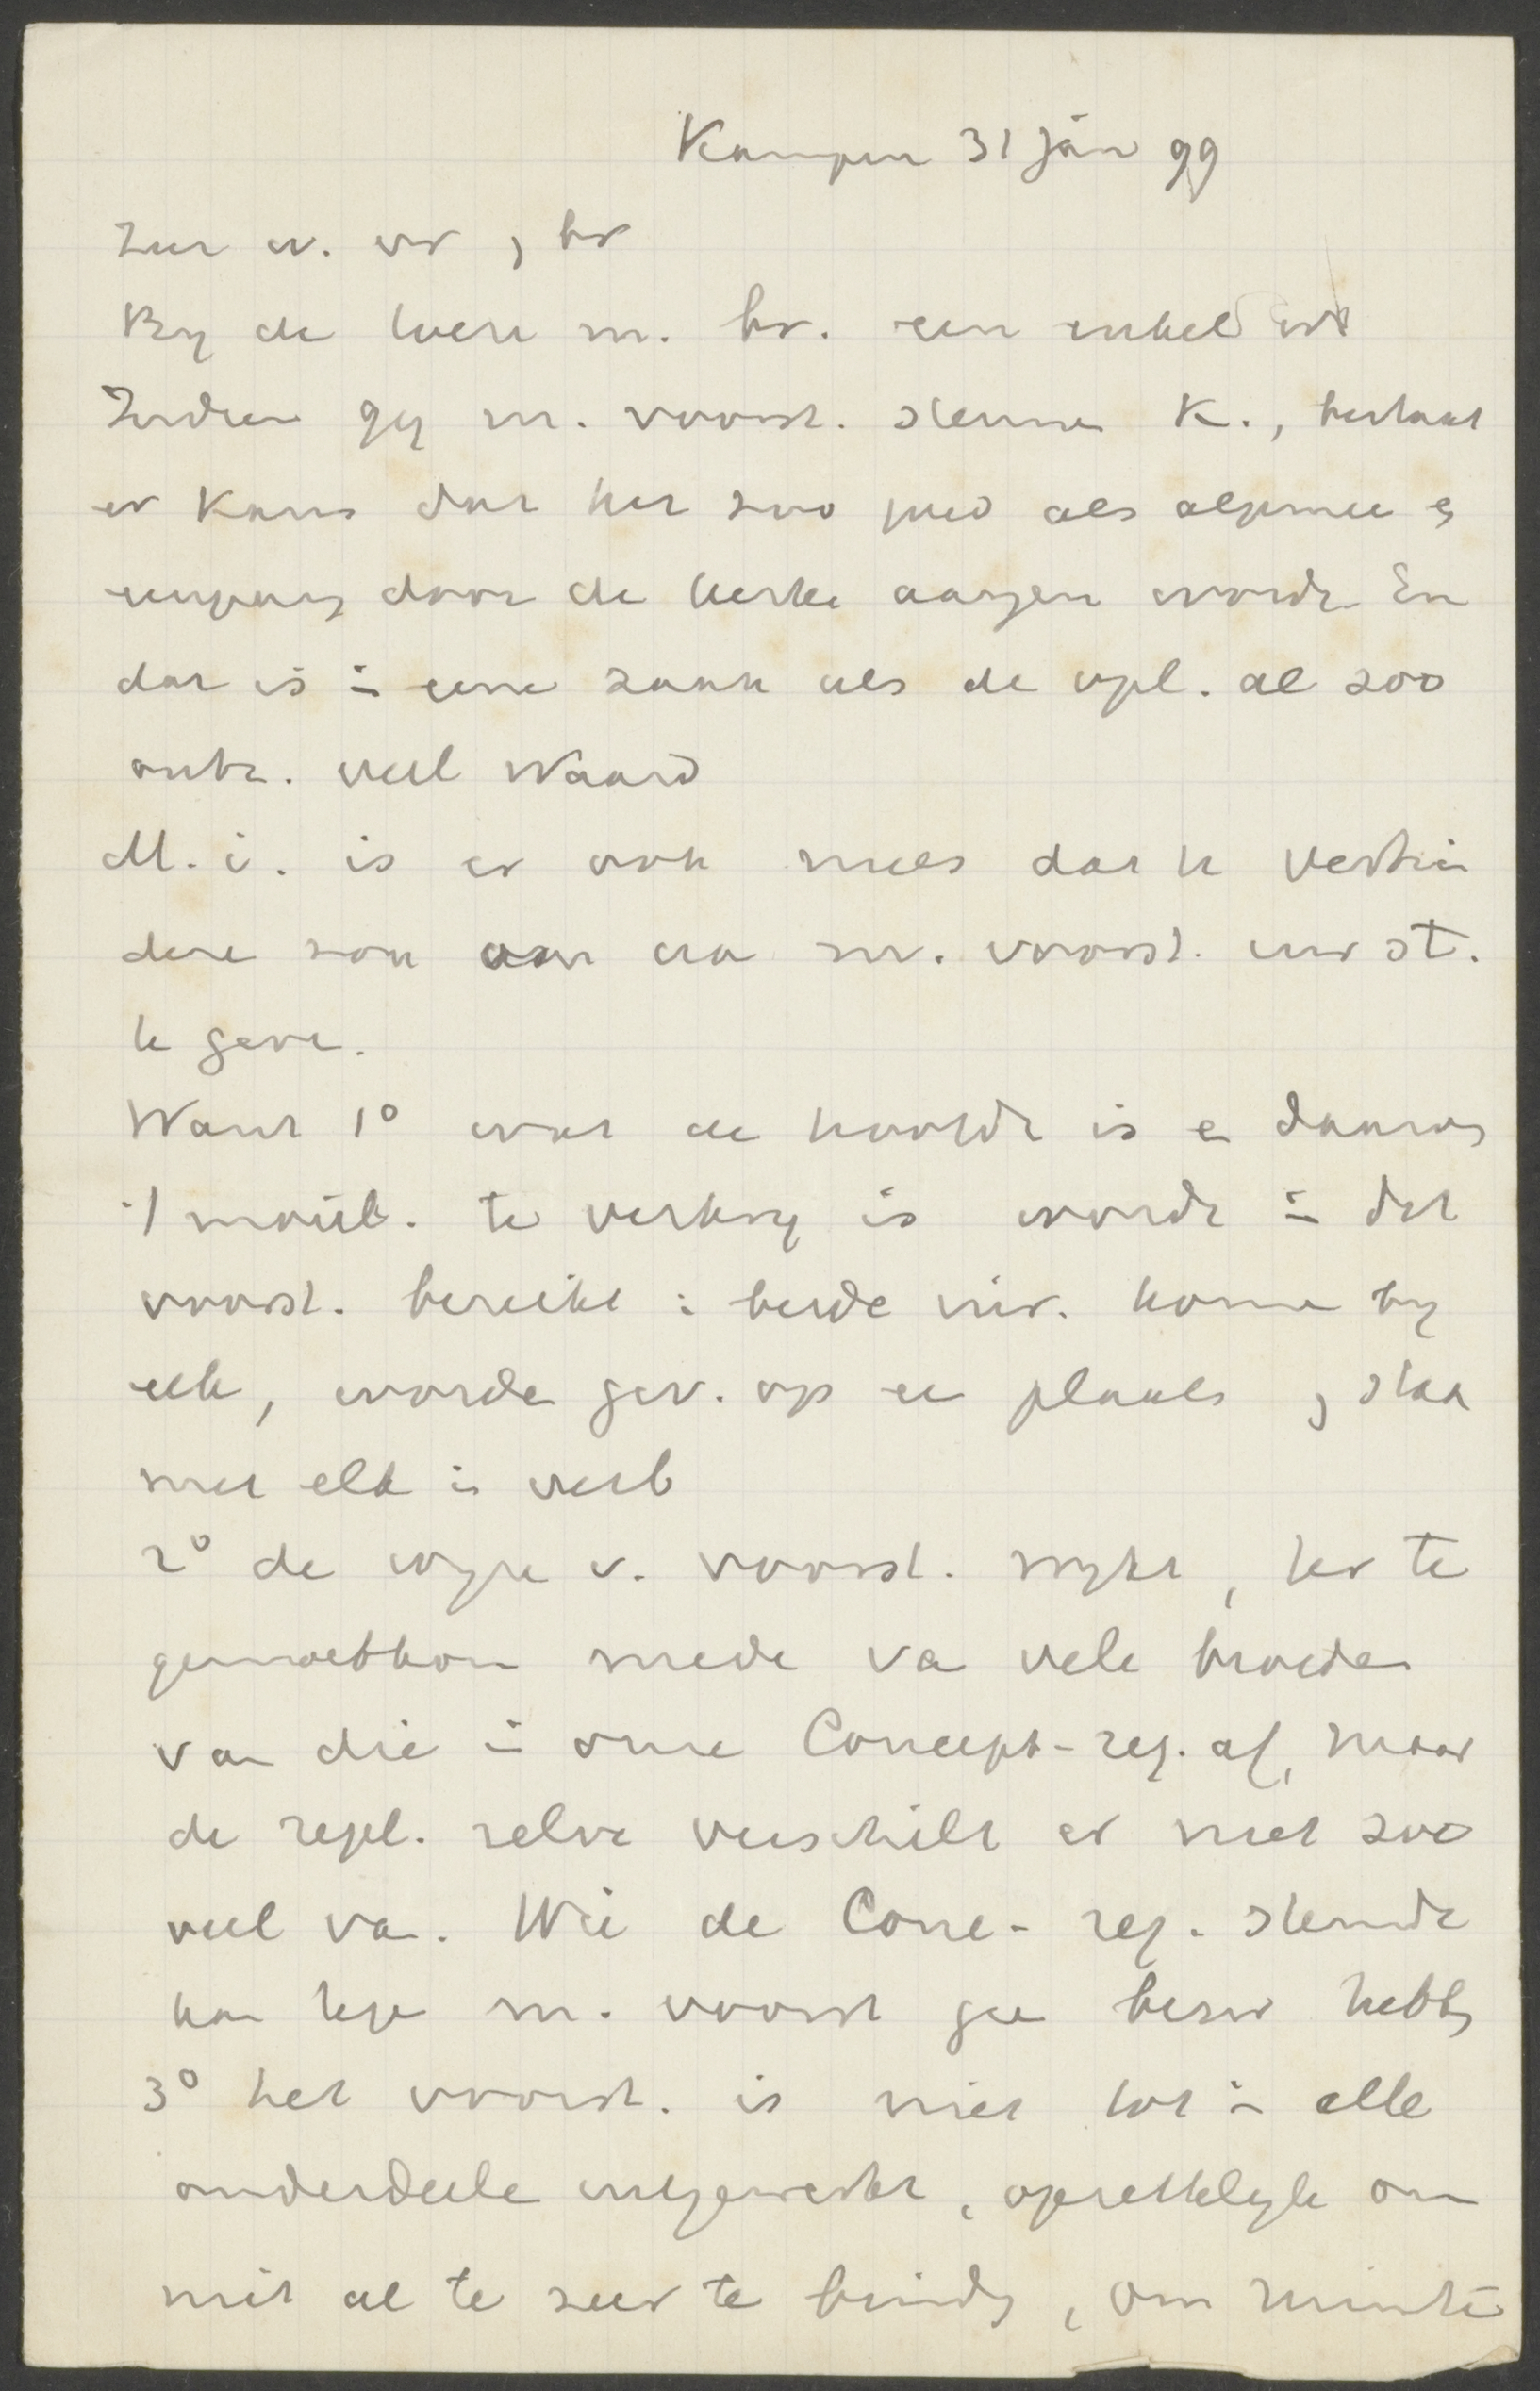 Kampen 31 Jan 99
Zeer w. vr , br
By de twee m. br. een enkel wrd
Indien gy m. voorst. steunen k., bestaat
er kans dat het zoo goed als algemee &
eenparig door de kerke aangen worde En
dat is in eene zaak als de opl. al zoo
ontz. veel waard
M. i. is er ook niets dat u verhin
dere zou aan m. voorst. uw st.
te geve.
Want 1° wat de hoofdz is e daarvan
mogel. te verkryg is worde in dat
voorst. bereikt : beide inr. kome by
elk, worde gev. op ee plaats , staa
met elk in verb
2° de wyze v. voorst. wykt , ter te
gemoetkom mede va vele broeder
van die in onze Concept-reg. af, maar
de regel. zelve verschilt er niet zoo
veel va. Wie de Conc- reg. steunde
kan tege m. voorst gee bezw hebb
3° het voorst. is niet tot in alle
onderdeele uitgewerkt , opzettelyk om
niet al te zeer te binde , om